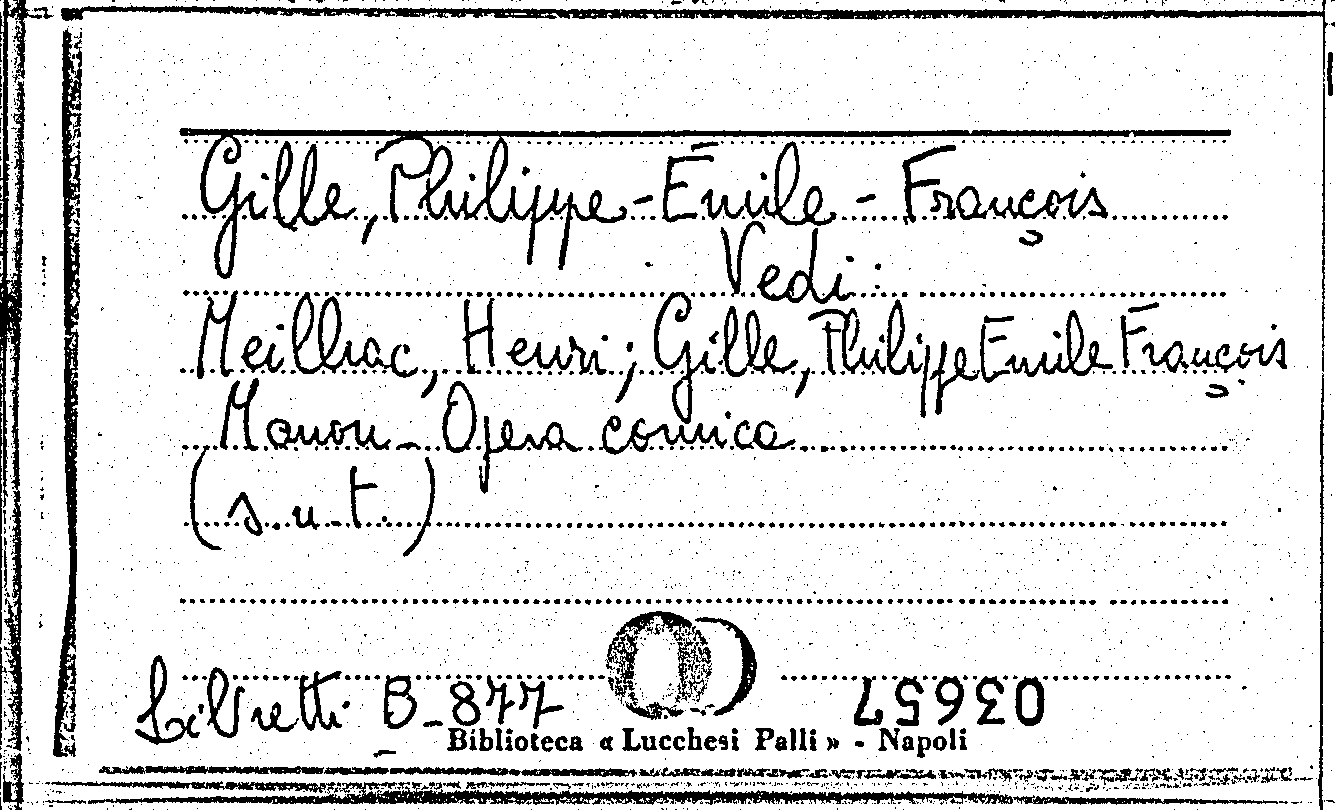 Gille, Philippe-Émile - François
Vedi :
Meilhac, Henri; Gille, Philippe Emile François
Manon - Opera comica
(s.n.t.)
Libretti B-877
03657
Biblioteca « Lucchesi Palli » - Napoli